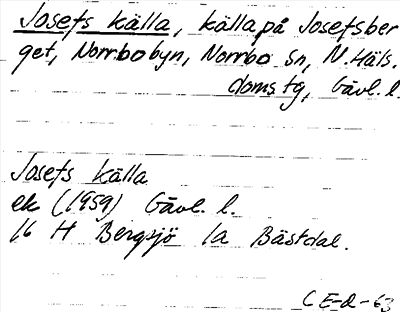 Josefs källa, källa på Josefsber
get, Norrbobyn, Norrbo sn, N. Häls.
doms tg, Gävl. l.
Josefs källa
ek (1959) Gävl. l.
16 H Bergsjö 1a Bästdal.
CE-d-63